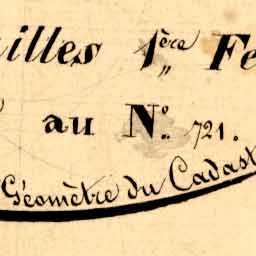 illes 1ère Fe
au No. 721.
Géomètre du Cadast